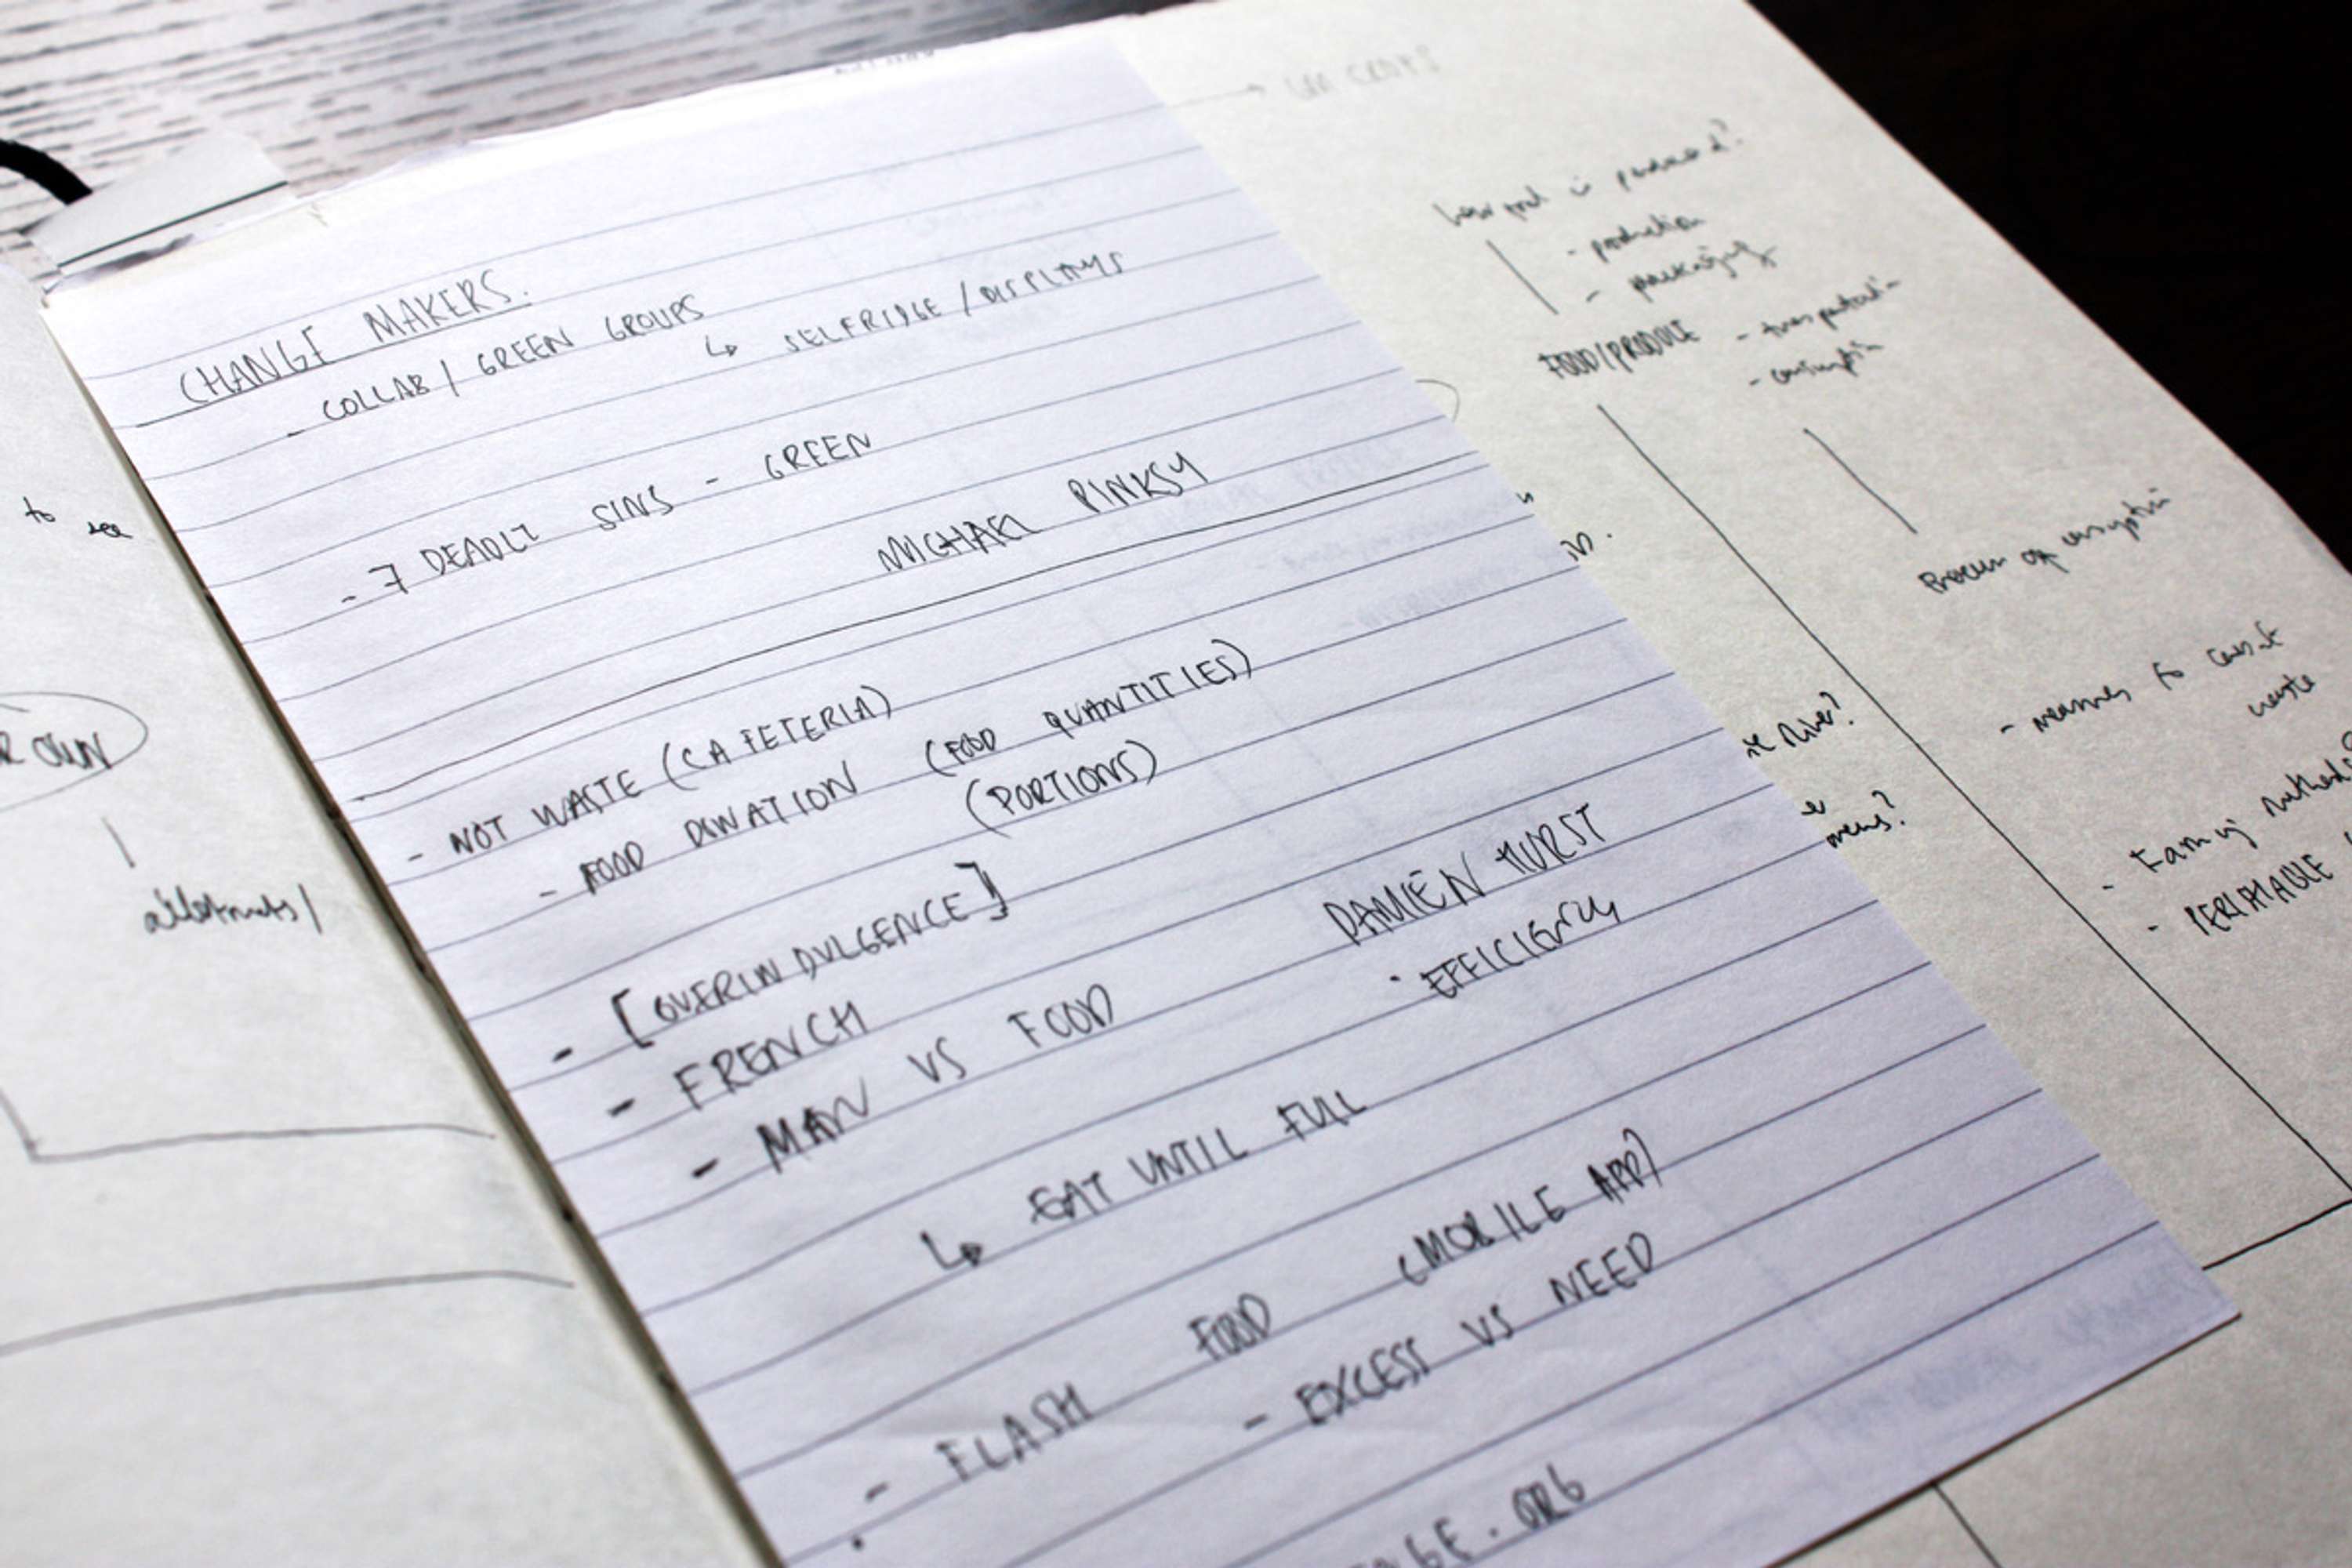 CHANGE MAKERS.
- COLLAB / GREEN GROUPS
↳ SELFRIDGE / DISPLAYS
- 7 DEADLY SINS - GREEN
MICHAEL PINKSY
- NOT WASTE (CAFETERIA)
- FOOD DONATION (FOOD QUANTITIES)
(PORTIONS)
- [OVERINDULGENCE]
- FRENCH
- MAN VS FOOD
DAMIEN HURST
· EFFICIENCY
↳ EAT UNTIL FULL
- FLASH FOOD (MOBILE APP)
- EXCESS VS NEED
NGE.ORG
to see
R OWN
how food is produced?
- production
- packaging
FOOD/PRODUCE
- consumption
Process of consumption
- measures to
waste
- Farming methods